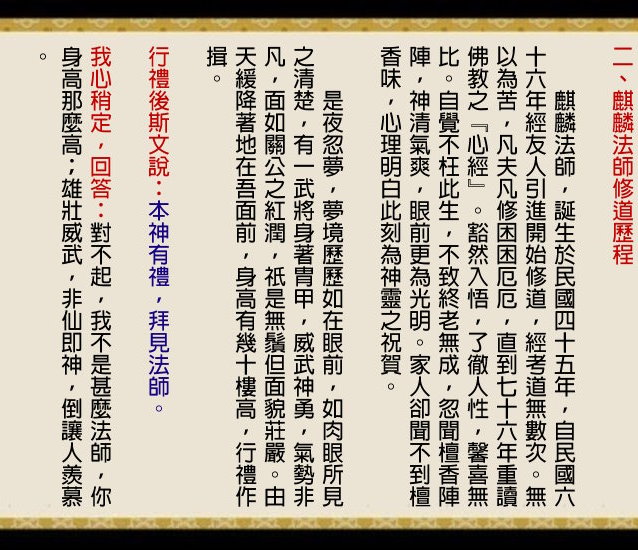 二、麒麟法師修道歷程
麒麟法師，誕生於民國四十五年，自民國六
十六年經友人引進開始修道，經考道無數次。無
以為苦，凡夫凡修困困厄厄，直到七十六年重讀
佛教之『心經』。豁然入悟，了徹人性，馨喜無
比。自覺不枉此生，不致終老無成，忽聞檀香陣
陣，神清氣爽，眼前更為光明。家人卻聞不到檀
香味，心理明白此刻為神靈之祝賀。
是夜忽夢，夢境歷歷如在眼前，如肉眼所見
之清楚，有一武將身著冑甲，威武神勇，氣勢非
凡，面如關公之紅潤，祇是無鬚但面貌莊嚴。由
天緩降著地在吾面前，身高有幾十樓高，行禮作
揖。
行禮後斯文說：本神有禮，拜見法師。
我心稍定，回答：對不起，我不是甚麼法師，你
身高那麼高；雄壯威武，非仙即神，倒讓人羨慕
。